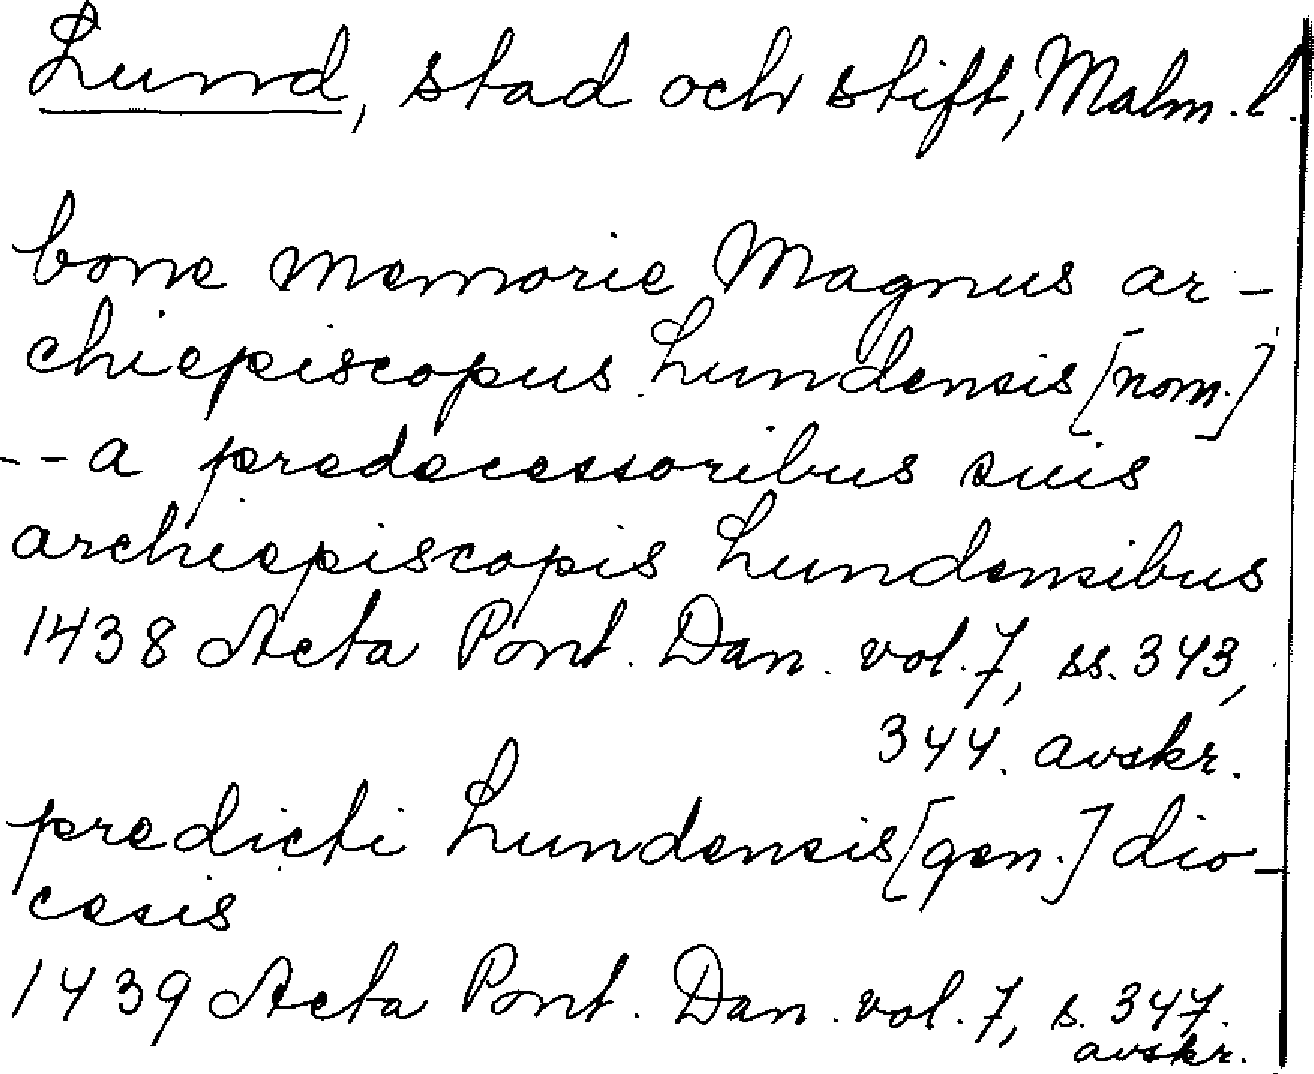 Lund, stad och stift, Malm. l.
bone memorie Magnus ar-
chiepiscopus Lundensis [nom.]
-- a predecessoribus suis
archiepiscopis Lundensibus
1438 Acta Pont. Dan. vol. 7, ss. 343,
344. avskr.
predicti Lundensis [gen.] dio-
cesis
1439 Acta Pont. Dan. vol. 7, s. 347.
avskr.